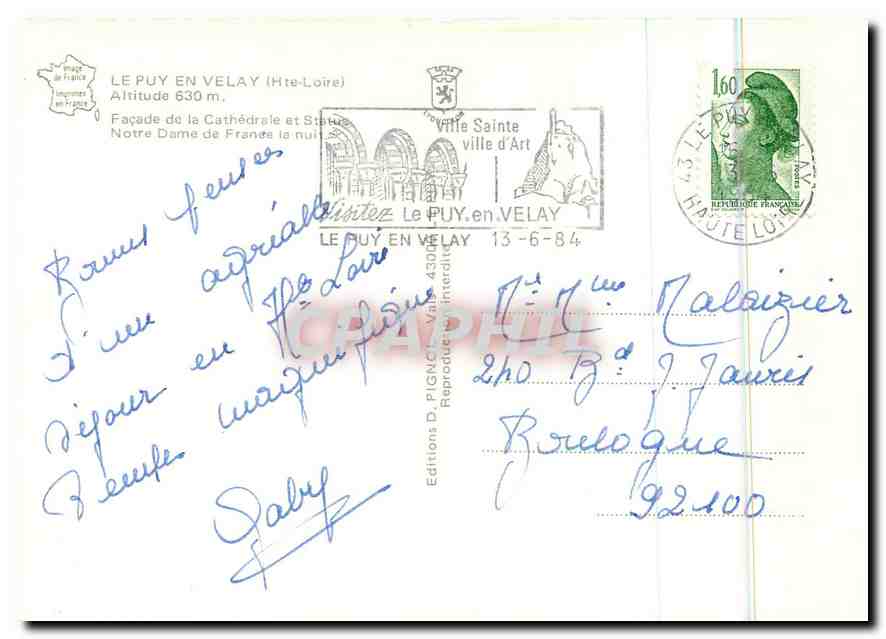 Image
de France
Imprimées
en France
LE PUY EN VELAY (Hte-Loire)
Altitude 630 m.
Façade de la Cathédrale et Statue
Notre Dame de France la nuit
Ville Sainte
ville d'Art
Visitez Le PUY.en.VELAY
LE PUY EN VELAY 13-6-84
1,60
REPUBLIQUE FRANÇAISE
POSTES
43 LE PUY VELAY
HAUTE LOIRE
Bonnes pensées
d'un agréable
séjour en Hte Loire
Temps magnifique
Gaby
Editions D. PIGNOL Vals 43000
Reproduction interdite
CPAPHIL
Mr Mme Malaizier
240 Bd J. Jaurès
Boulogne
92100